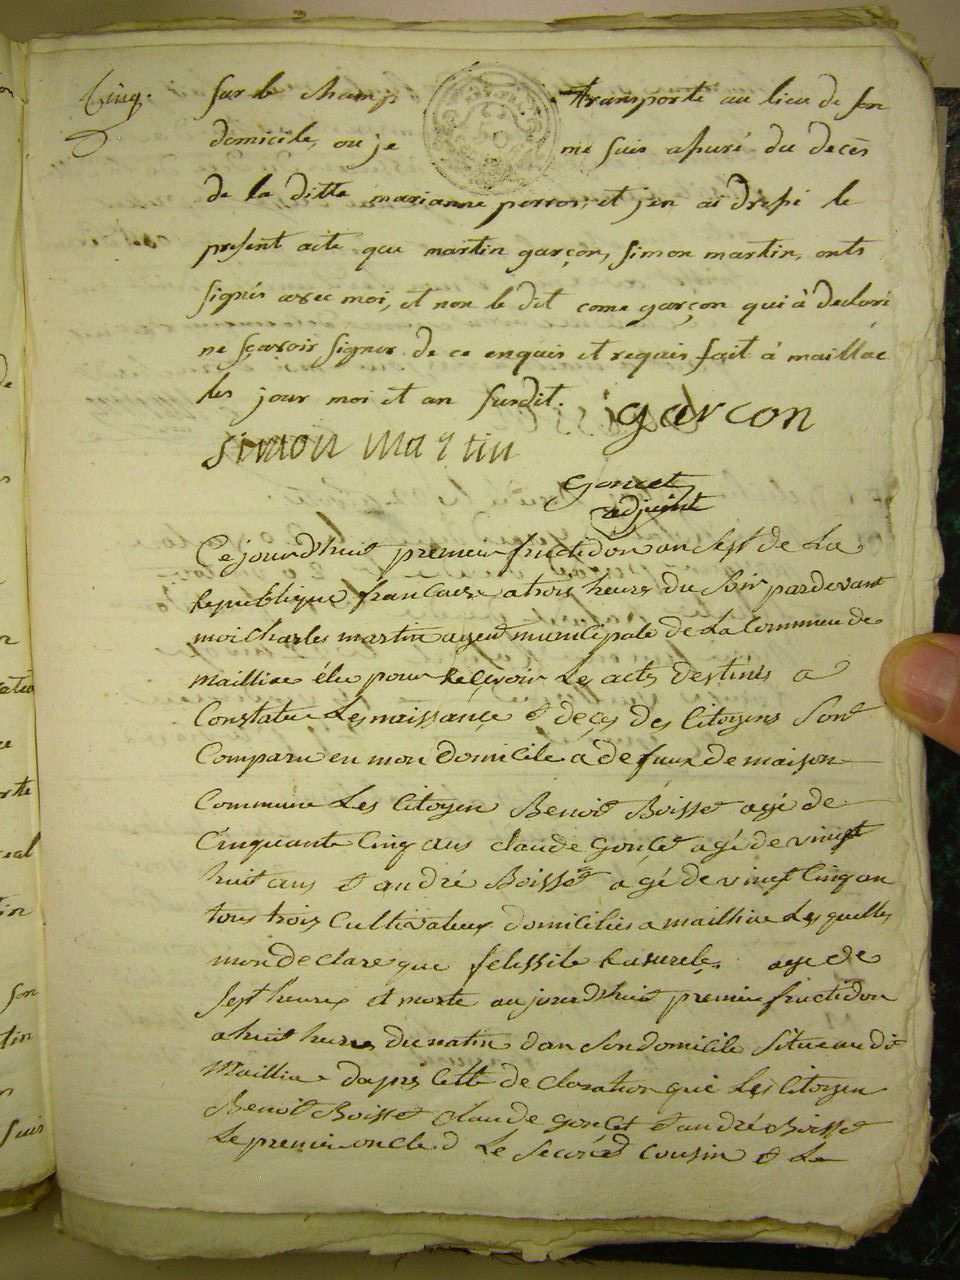 Cinq.
sur le champ transporté au lieu de son
domicile, ou je me suis assuré du decès
de la ditte marianne perron, et j'en ai dressé le
present acte que martin garçon, simon martin, onts
signés avec moi, et non le dit come garçon qui à declaré
ne sçavoir signer de ce enquis et requis, fait à maillac
les jour moi et an susdit.
garcon
simon martin
Goncet
adjoint
Ce jourd'huit premier fructidon an sept de La
Republique francaise a trois heures du soir par devant
moi Charles martin agent municipale de La Commune de
Mailliac élu pour Recevoir Les actes destinés a
Constater Les naissançe et deçes des Citoyens sont
Comparu en mon domicile a defaux de maison
Commune Les Citoyen Benoit Boisset agé de
Cinquante Cinq ans claude gonçet agé de vingt
huit ans et andré Boisset agé de vingt Cinq an
tous trois Cultivateur domiciliés a mailliac Lesquelles
mon declare que agé de
sept heures et morte aujourd'huit premier fructidon
a huit heures du matin dan son domicile situé au dit
Mailliac dapres cette declaration que Les Citoyen
Benoit Boisset Claude goncet et andré Boisset
Le premier oncle Le second cousin et Le